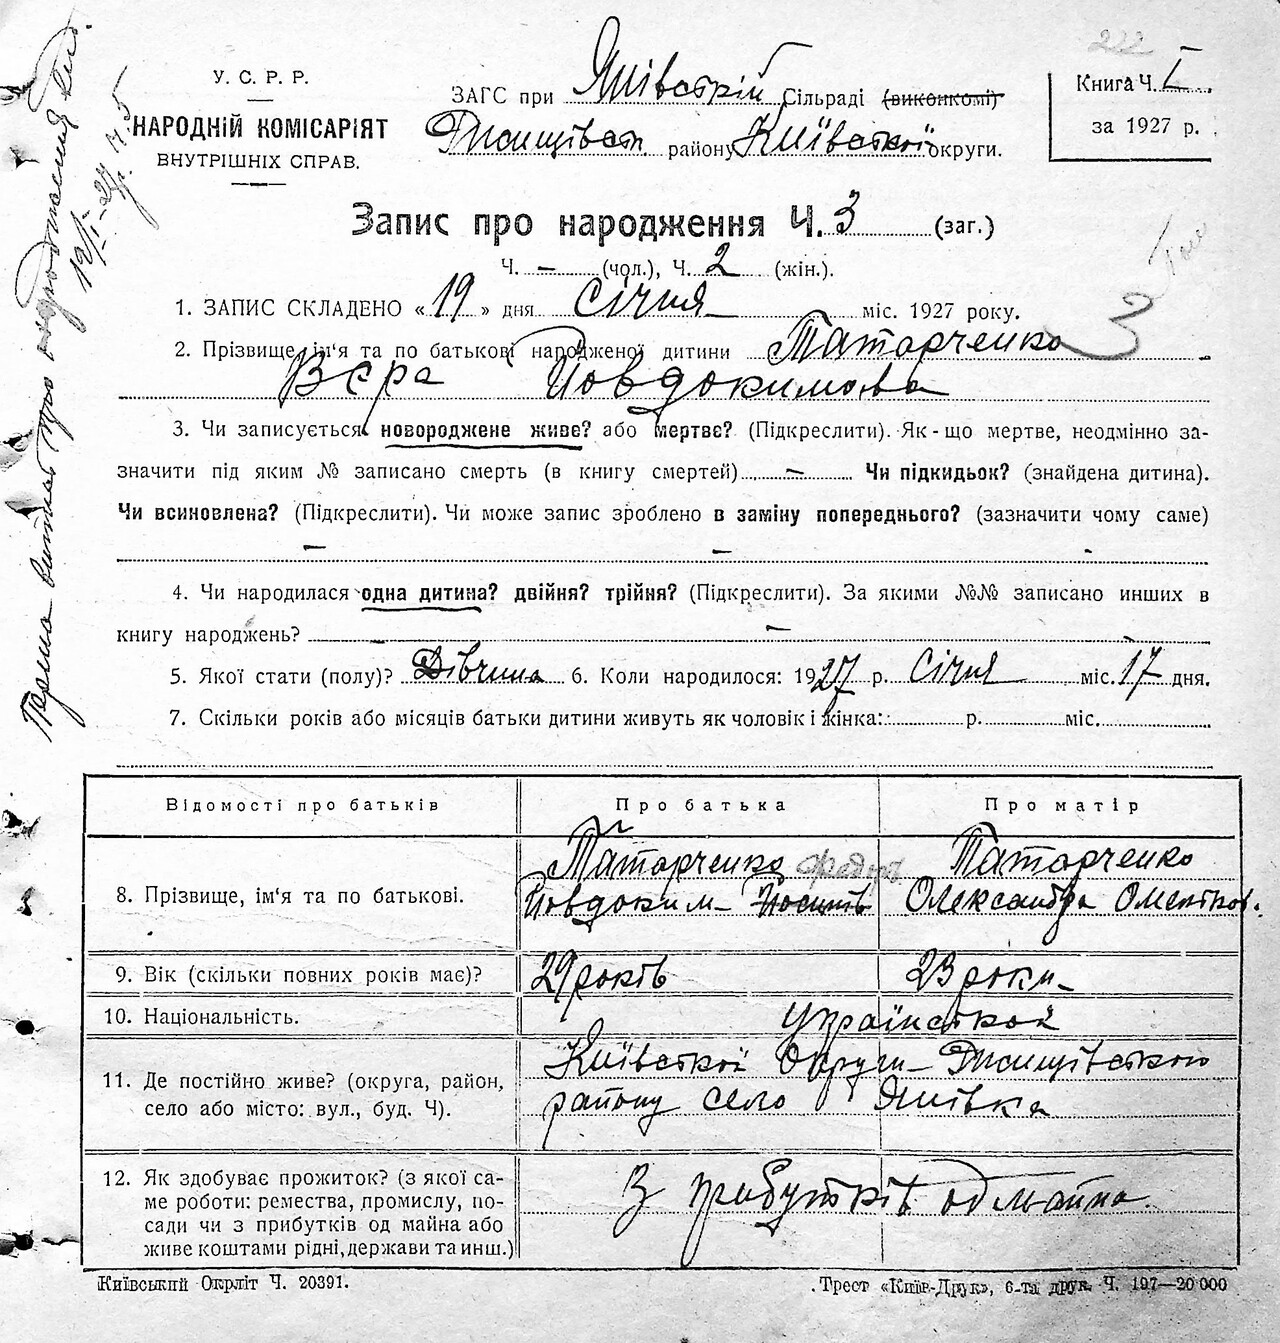 222
У. С. Р. Р.
НАРОДНІЙ КОМІСАРІЯТ
ВНУТРІШНІХ СПРАВ.
ЗАГС при Янівській Сільраді (виконкомі)
району Київської округи.
Книга Ч. I
за 1927 р.
Запис про народження Ч. 3 (заг.)
Ч. – (чол.), Ч. 2 (жін.).
1. ЗАПИС СКЛАДЕНО « 19 » дня Січня міс. 1927 року.
3
2. Прізвище, ім‘я та по батькові народженої дитини Татарченко
Вєра Йовдокимовна
3. Чи записується новороджене живе? або мертве? (Підкреслити). Як-що мертве, неодмінно за-
значити під яким № записано смерть (в книгу смертей) – Чи підкидьок? (знайдена дитина).
Чи всиновлена? (Підкреслити). Чи може запис зроблено в заміну попереднього? (зазначити чому саме)
– – -
4. Чи народилася одна дитина? двійня? трійня? (Підкреслити). За якими №№ записано инших в
книгу народжень? – – -
5. Якої стати (полу)? Дівчина 6. Коли народилося: 1927 р. Січня міс. 17 дня.
7. Скільки років або місяців батьки дитини живуть як чоловік і жінка: р. міс.
Відомості про батьків Про батька Про матір
8. Прізвище, ім‘я та по батькові.
Татарченко
Йовдоким
Татарченко
Олександра
9. Вік (скільки повних років має)? 29 років 23 роки
10. Національність. Українській
11. Де постійно живе? (округа, район,
село або місто: вул., буд. Ч).
Київській Округи
району село Янівка
12. Як здобуває прожиток? (з якої са-
ме роботи: ремества, промислу, по-
сади чи з прибутків од майна або
живе коштами рідні, держави та инш.)
З прибутків од майна.
Київський Окрліт Ч. 20391.
Трест «Київ-Друк», 6-та друк. Ч. 197—20 000
витяг про народження
19/I-27 р. № 5